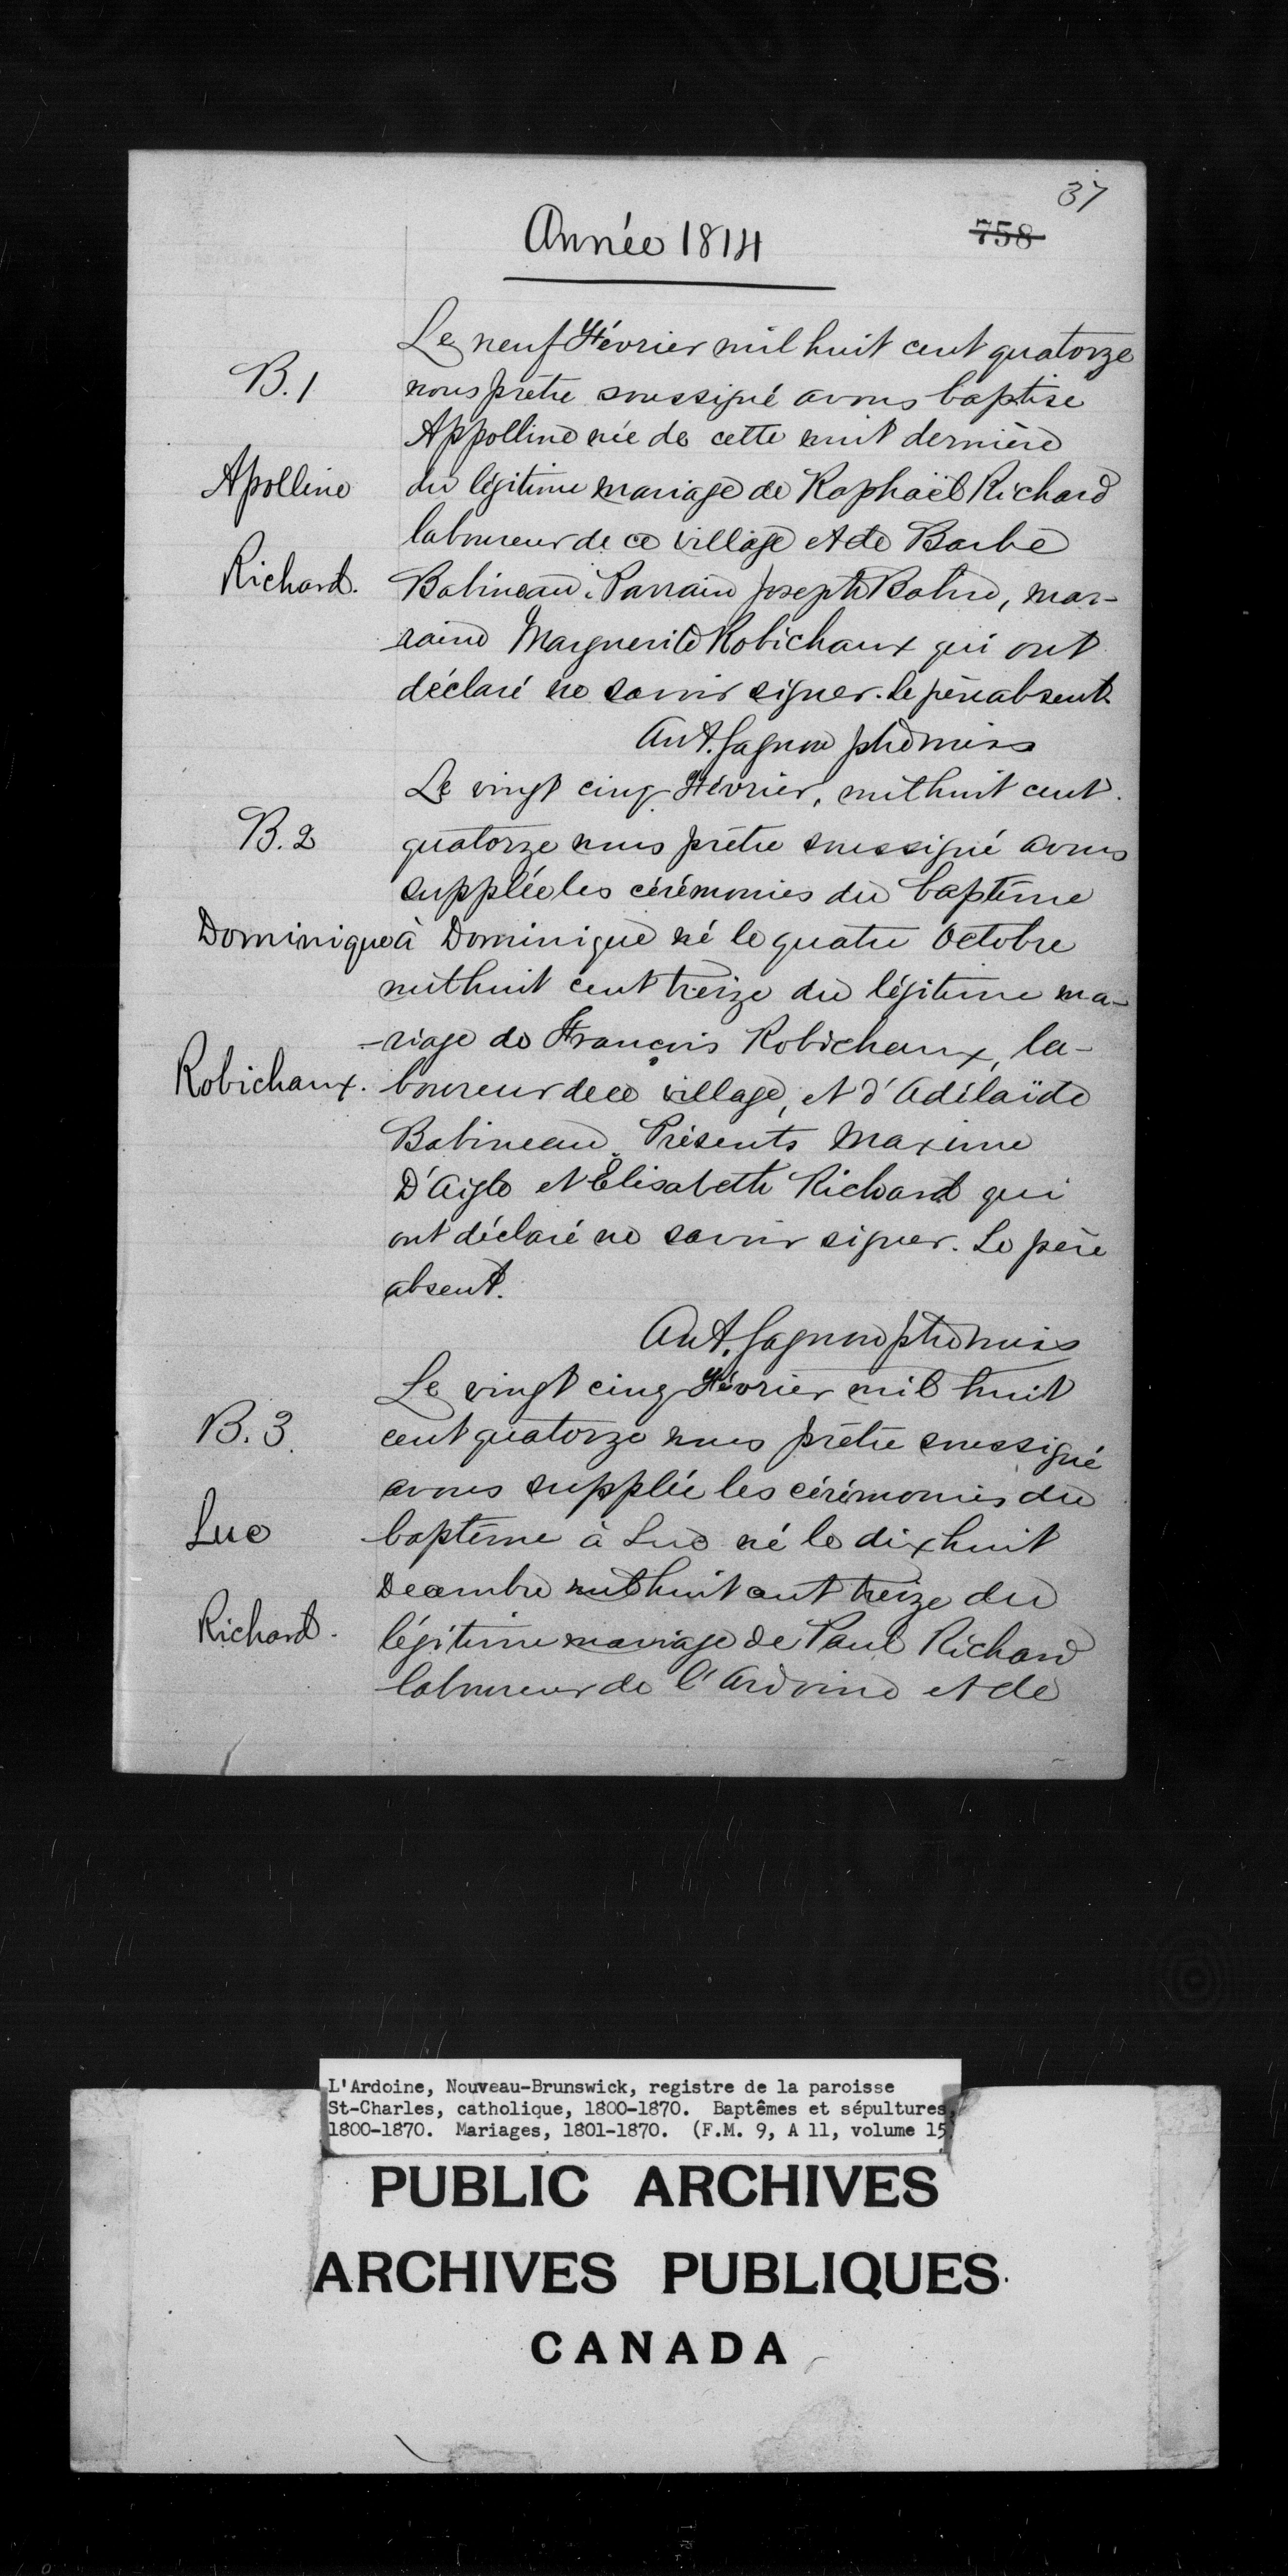 37
758
Année 1814
Le neuf Février mil huit cent quatorze
B.1
nous prêtre soussigné avons baptise
Appolline née de cette nuit dernière
Apolline
du légitime mariage de Raphaël Richard
laboureur de ce village et de Barbe
Richard.
Babineau. Parrain Joseph, mar-
raine Marguerite Robichaux qui ont
déclaré ne savoir signer. le père absent.
Ant. Gagnon ptre miss
Le vingt cinq Février, mil huit cent
B. 2
quatorze nous prêtre soussigné avons
supplée les cérémonies du baptême
Dominique
à Dominique né le quatre Octobre
mil huit cent treize du légitime ma-
-riage de François Robichaux, la-
Robichaux.
boureur de ce village, et d'Adélaïde
Babineau. Présents Maxime
D'Aigle et Elisabeth Richard qui
ont déclaré ne savoir signer. Le père
absent.
Ant. Gagnon ptre miss
Le vingt cinq Février mil huit
B. 3.
cent quatorze nous prêtre soussigné
avons supplée les cérémonies du
Luc
baptême à Luc né le dix huit
Decembre mil huit cent treize du
Richard.
légitime mariage de Paul Richard
laboureur de l'Ardoine et de
L'Ardoine, Nouveau-Brunswick, registre de la paroisse
St-Charles, catholique, 1800-1870. Baptêmes et sépultures,
1800-1870. Mariages, 1801-1870. (F.M. 9, A 11, volume 15)
PUBLIC ARCHIVES
ARCHIVES PUBLIQUES
CANADA